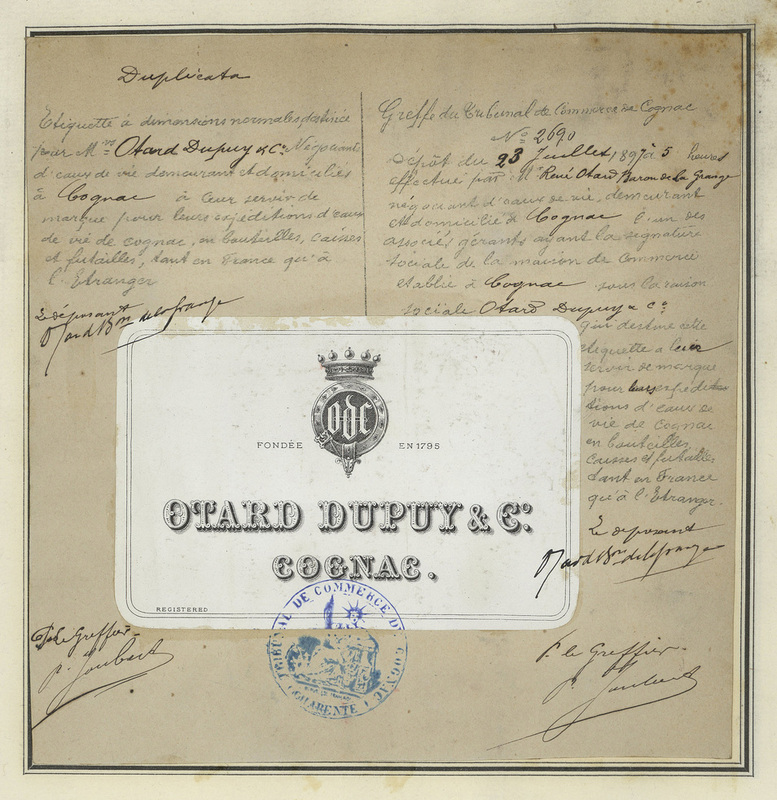 Duplicata
Etiquette à dimensions normales, destinée
pour M.rs Otard Dupuy & Co. Négociants
d'eaux de vie demeurant et domiciliés
à Cognac à leur servir de
marque pour leurs expéditions d'eaux
de vie de cognac, en bouteilles, caisses
et futailles, tant en France qu'à
l'Etranger
Le déposant
Otard Bon de la Grange
Greffe du Tribunal de Commerce de Cognac
No 2690
Dépôt du 23 Juillet 1897 à 5 heures
effectué par M. René Otard Baron de la Grange
négociant d'eaux de vie, demeurant
et domicilié à Cognac l'un des
associés gérants ayant la signature
sociale de la maison de Commerce
établie à Cognac sous la raison
sociale Otard Dupuy & Co.
qui destine cette
étiquette à leur
servir de marque
pour leurs expédi-
tions d'eaux de
vie de cognac
en bouteilles,
caisses et futailles
tant en France
qu'à l'Etranger.
Le déposant
Otard Bon de la Grange
ODC
FONDÉE EN 1795
OTARD DUPUY & Co.
COGNAC.
REGISTERED
TRIBUNAL DE COMMERCE DE COGNAC
(CHARENTE)
P. le Greffier
P. Joubert
P. le Greffier
P. Joubert